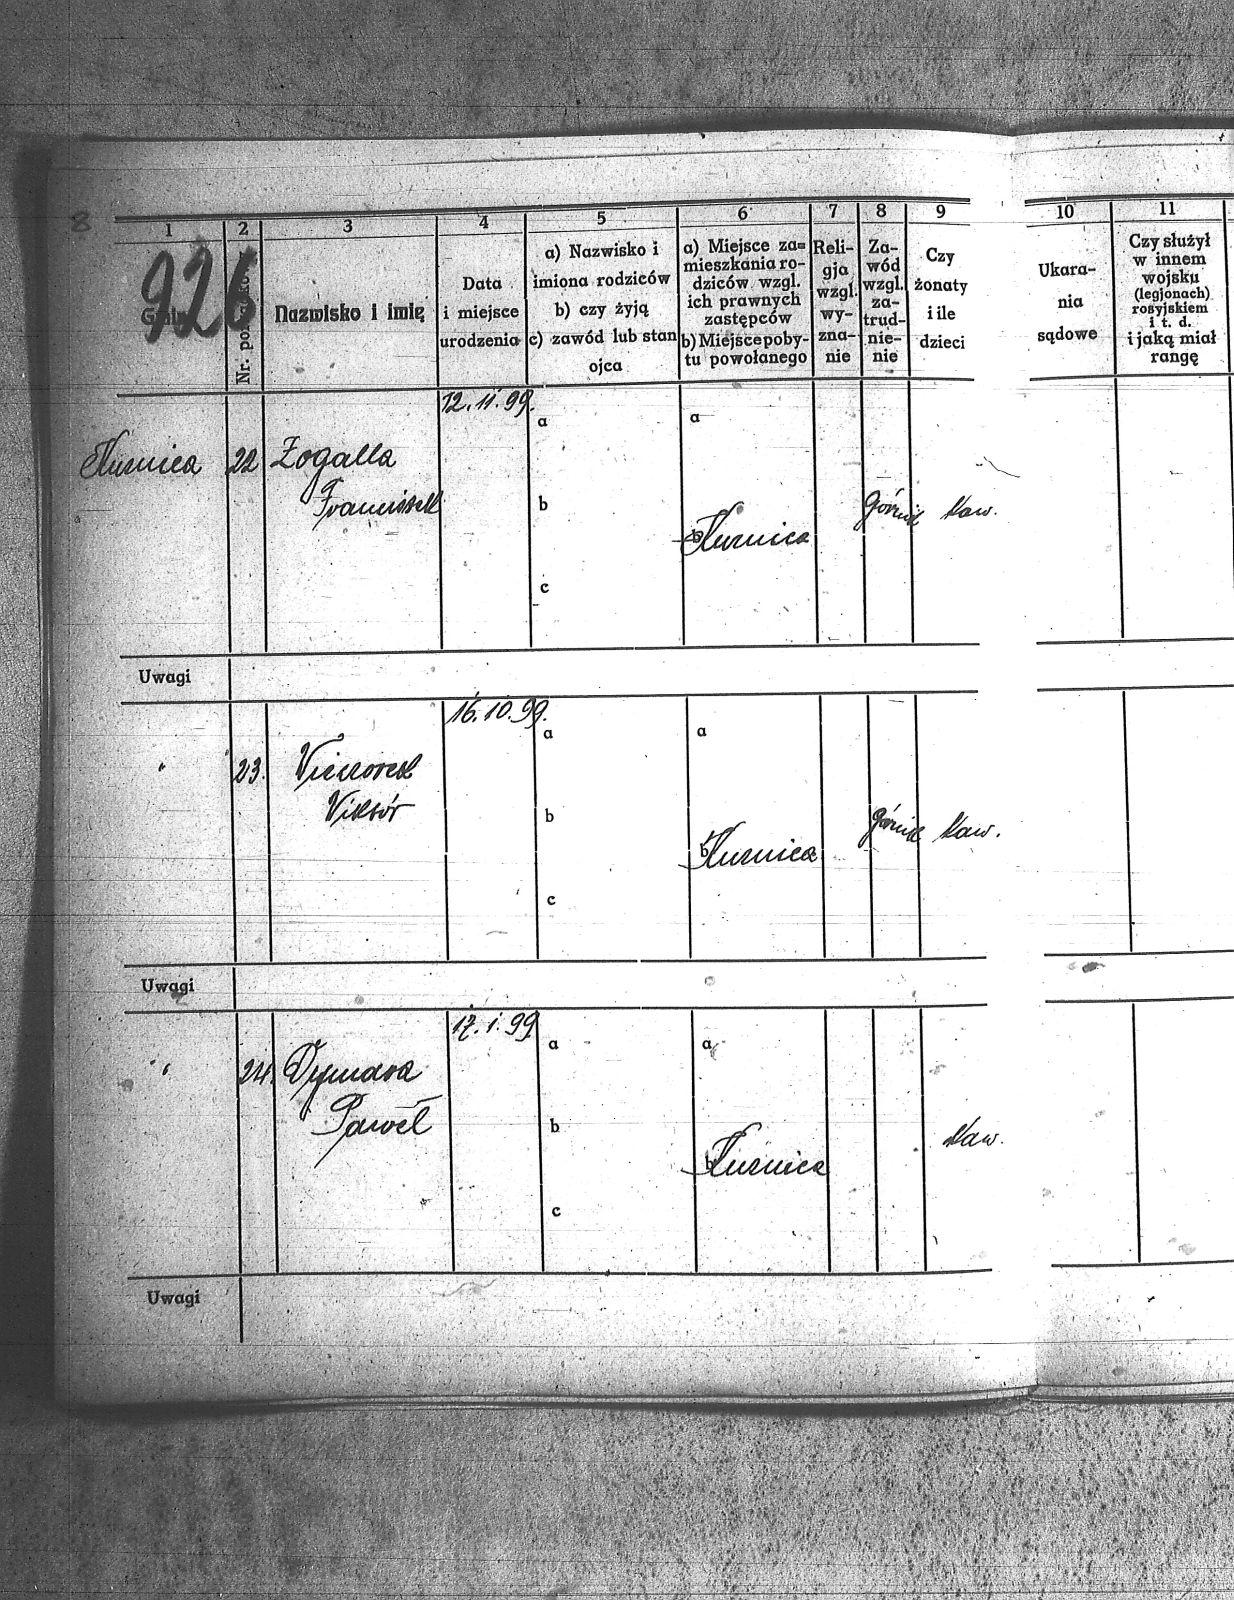 8
926
1
2
3
4
5
6
7
8
9
10
11
Gmina
Nr. po
Nazwisko i imię
Data
i miejsce
urodzenia
a) Nazwisko i
imiona rodziców
b) czy żyją
c) zawód lub stan
ojca
a) Miejsce za=
mieszkania ro-
dziców wzgl.
ich prawnych
zastępców
b) Miejsce poby-
tu powołanego
Reli-
gja
wzgl.
wy-
zna-
nie
Za-
wód
wzgl.
za-
trud-
nie-
nie
Czy
żonaty
i ile
dzieci
Ukara-
nia
sądowe
Czy służył
w innem
wojsku
(legjonach)
rosyjskiem
i t. d.
i jaką miał
rangę
12.11.99.
a
a
22
Zogalla
Franciszek
b
b
górnik
kaw.
c
Uwagi
16.10.99.
a
a
"
23.
Vieczorek
Viktór
b
b
górnik
kaw.
c
Uwagi
17.1.99
a
a
"
24.
Paweł
b
b
kaw.
c
Uwagi